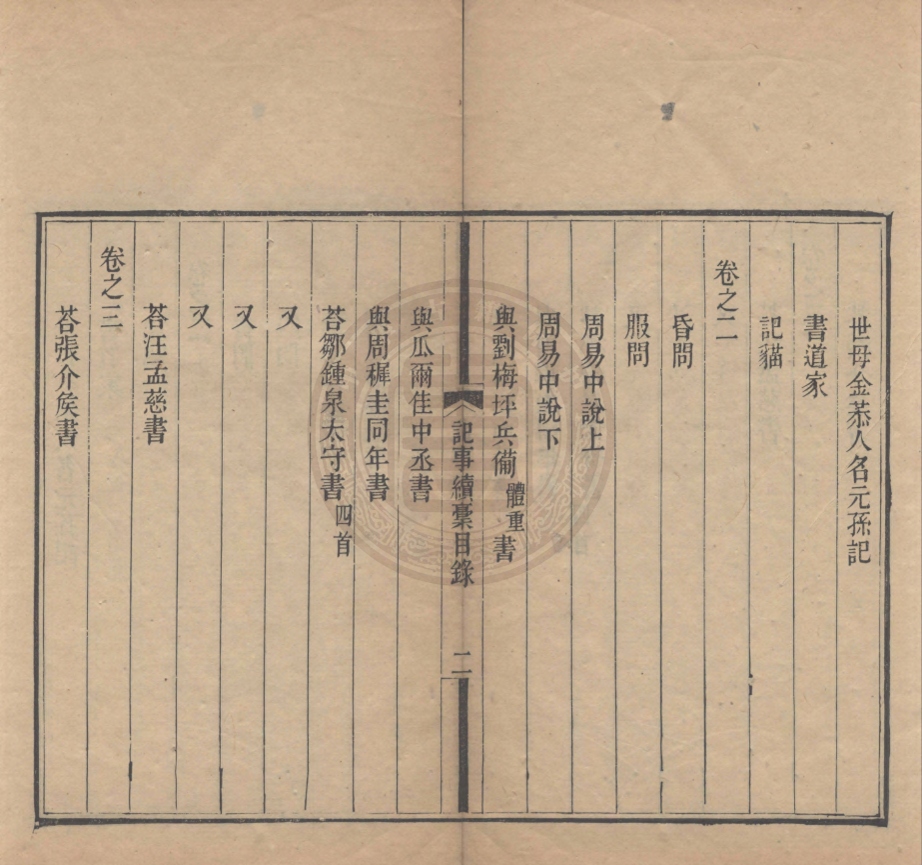 世母金恭人名元孫記
書道家
記貓
卷之二
昏問
服問
周易中說上
周易中說下
與劉梅坪兵備體重書
記事續稾目錄
二
與瓜爾佳中丞書
與周穉圭同年書
荅鄒鍾泉太守書四首
又
又
又
荅汪孟慈書
卷之三
荅張介矦書